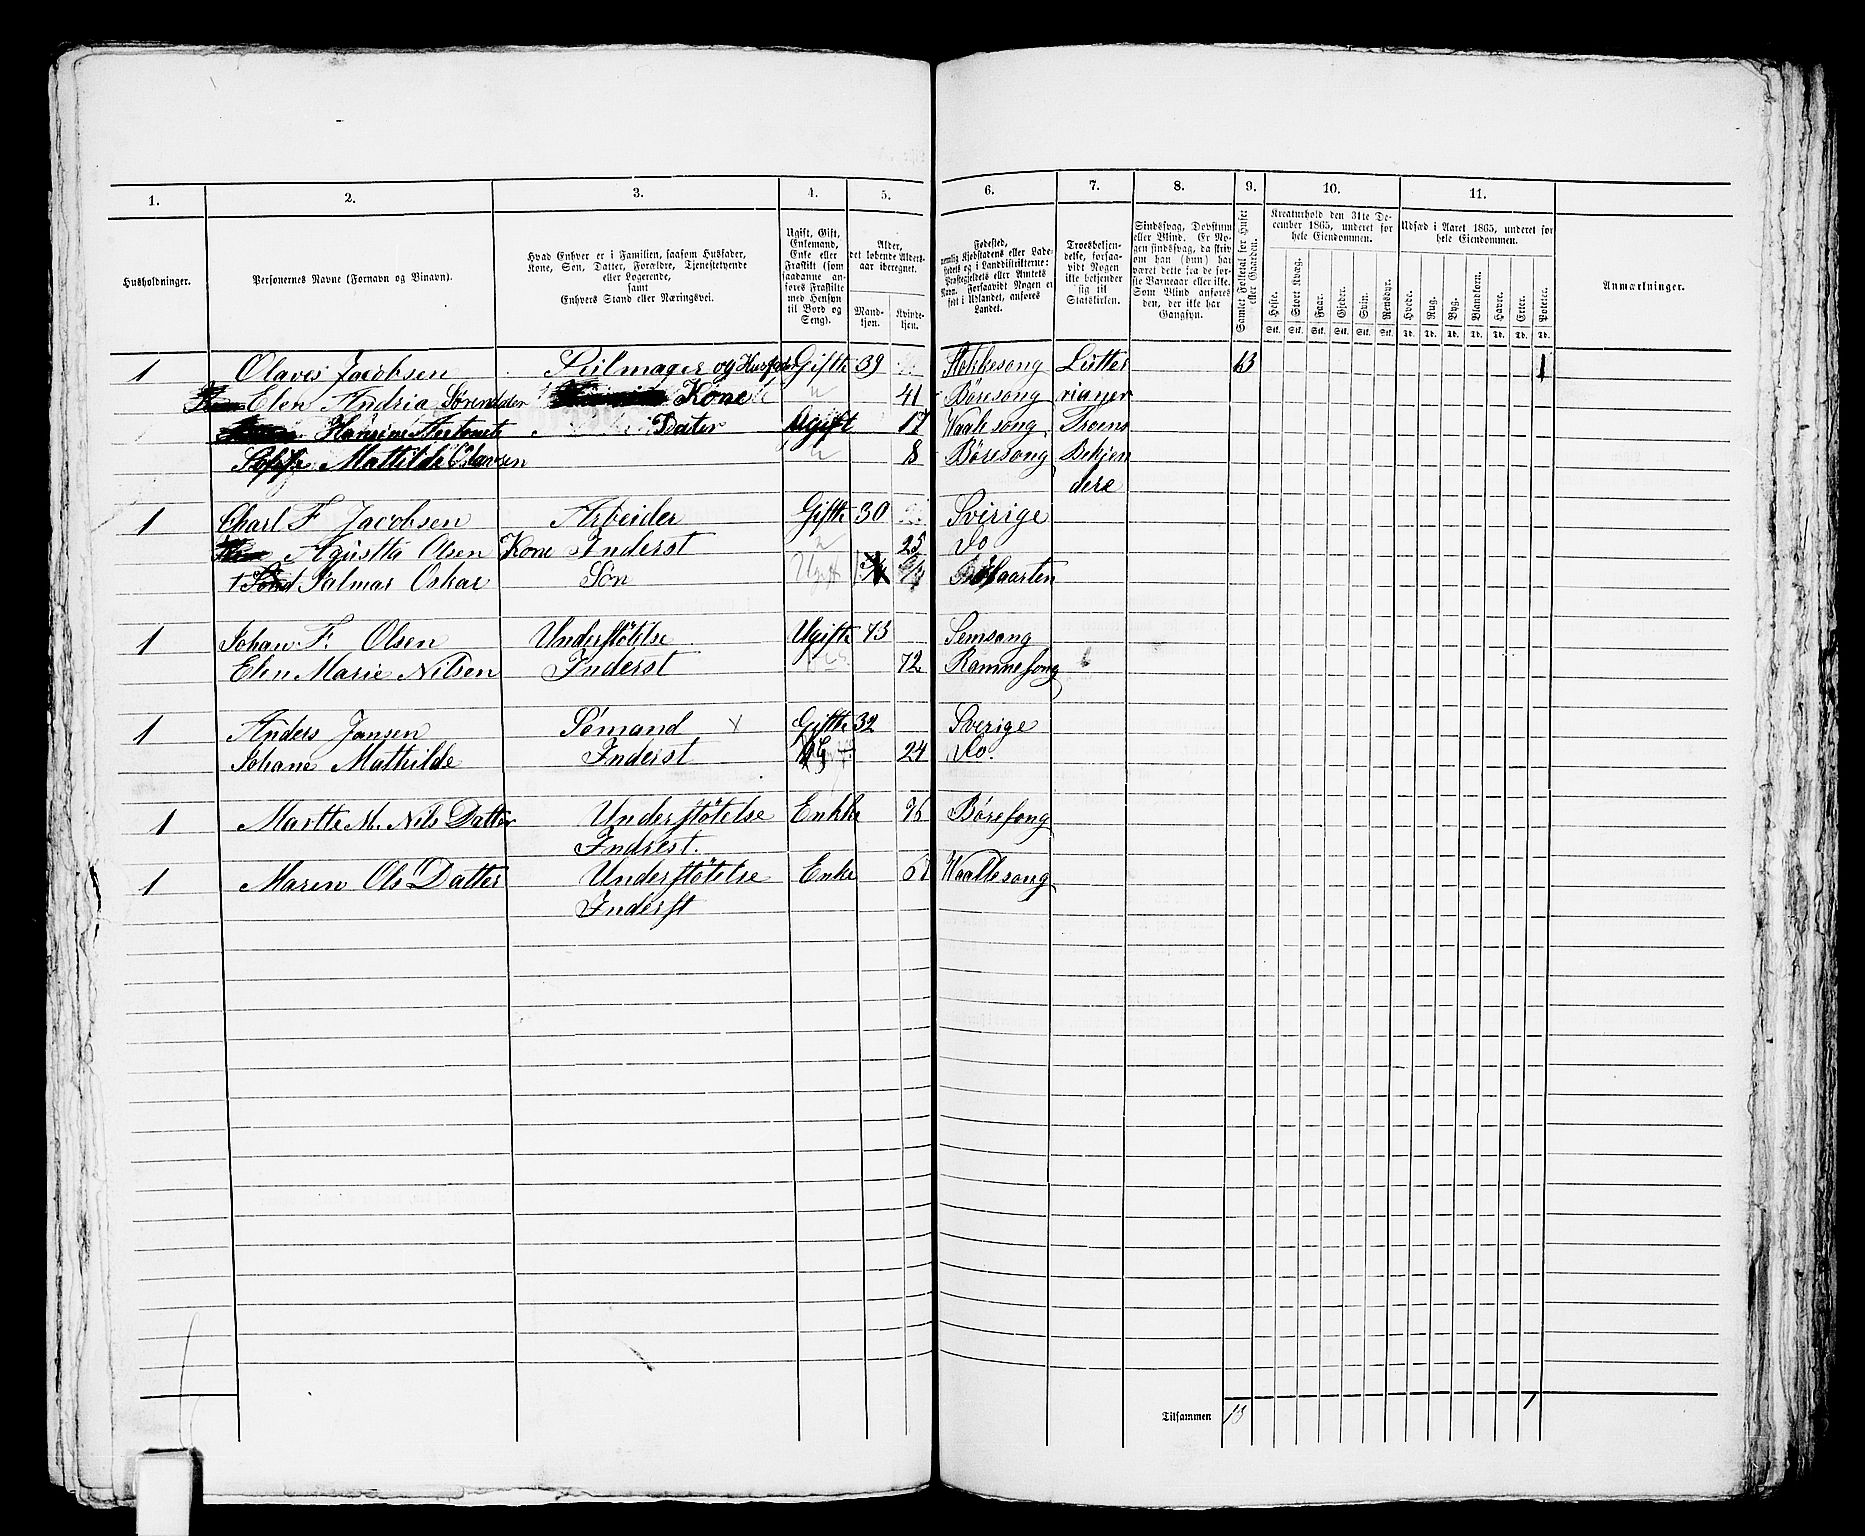 1. 2. 3. 4. 5. 6. 7. 8. 9. 10. 11.
Husholdninger.
Personernes Navne (Fornavn og Binavn).
Hvad Enhver er i Familien, saasom Husfader,
Kone, Søn, Datter, Forældre, Tjenestetyende
eller Logerende,
samt
Enhvers Stand eller Næringsvei.
Ugift, Gift,
Enkemand,
Enke eller
Fraskilt (som
saadanne an-
føres Fraskilte
med Hensyn
til Bord og
Seng).
Alder,
det løbende Alders-
aar iberegnet.
Mand-
kjøn.
Kvinde-
kjøn.
Fødested,
nemlig Kjøbstadens eller Lade-
stedets og i Landdistrikterne:
Præstegjeldets eller Amtets
Navn. Forsaavidt Nogen er
født i Udlandet, anføres
Landet.
Troesbekjen-
delse, forsaa-
vidt Nogen
ikke bekjender
sig til
Statskirken.
Sindssvag, Døvstum
eller Blind. Er No-
gen sindssvag, da skriv
om han (hun) har
været dette fra de før-
ste Barneaar eller ikke.
Som Blind anføres
den, der ikke har
Gangsyn.
Samlet Folketal for Huset
eller Gaarden.
Kreaturhold den 31te De-
cember 1865, underet for
hele Eiendommen.
Heste. Stort Kvæg. Faar. Gjeder. Svin. Rensdyr.
Stk. Stk. Stk. Stk. Stk. Stk.
Udsæd i Aaret 1865, underet for
hele Eiendommen.
Hvede. Rug. Byg. Blandkorn. Havre. Erter. Poteter.
Td. Td. Td. Td. Td. Td. Td.
Anmærkninger.
1 Olaves Jacobsen Seilmager og Husfader Gifth 39 Stokkesong Lutter 13 1
Elen Andria Sørendater Kone " 41 Børesong rianer
Hansine Antonete Dater Ugift 17 Waalesong Troens
Soffie Mathilde Olavsen " 8 Børesong Bekjen
dere
1 Charl F Jacobsen Arbeider Gifth 30 Svirige
Agustta Olsen Kone Inderst " 25 Do
1 Jalmar Oskar Søn Ugift
1 Johan F. Olsen Understøtelse Ugifth 73 Semsong
Elen Marie Nilsen Inderst 72 Ramnesong
1 Anders Jansen Sømand x Gifth 32 Sverige
Johane Mathilde Inderst 24 Do.
1 Marthe M. Nils Datter Understøtelse Enkke Børesong
Indrest.
1 Maren Ols Datter Understøtelse Enke Waallesong
Inderst
Tilsammen 13 1